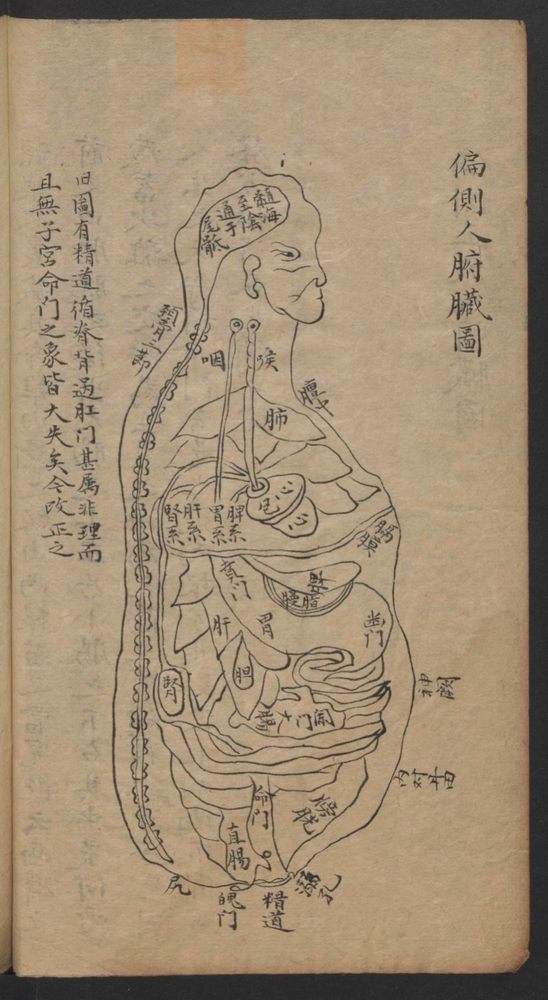 偏側人腑臟圖
髓海
至陰
通于
尾骶
頸骨三節
咽
喉
膻中
肺
心
心
包
脾系
胃系
肝系
腎系
膈膜
賁门
脾
脂膜
胃
肝
幽门
胆
腎
闌门
大腸
神闕
內对丹田
命门
膀胱
直腸
尻
魄门
精道
溺孔
旧圖有精道循脊背過肛门甚属非理而
且無子宮命门之象皆大失矣今改正之